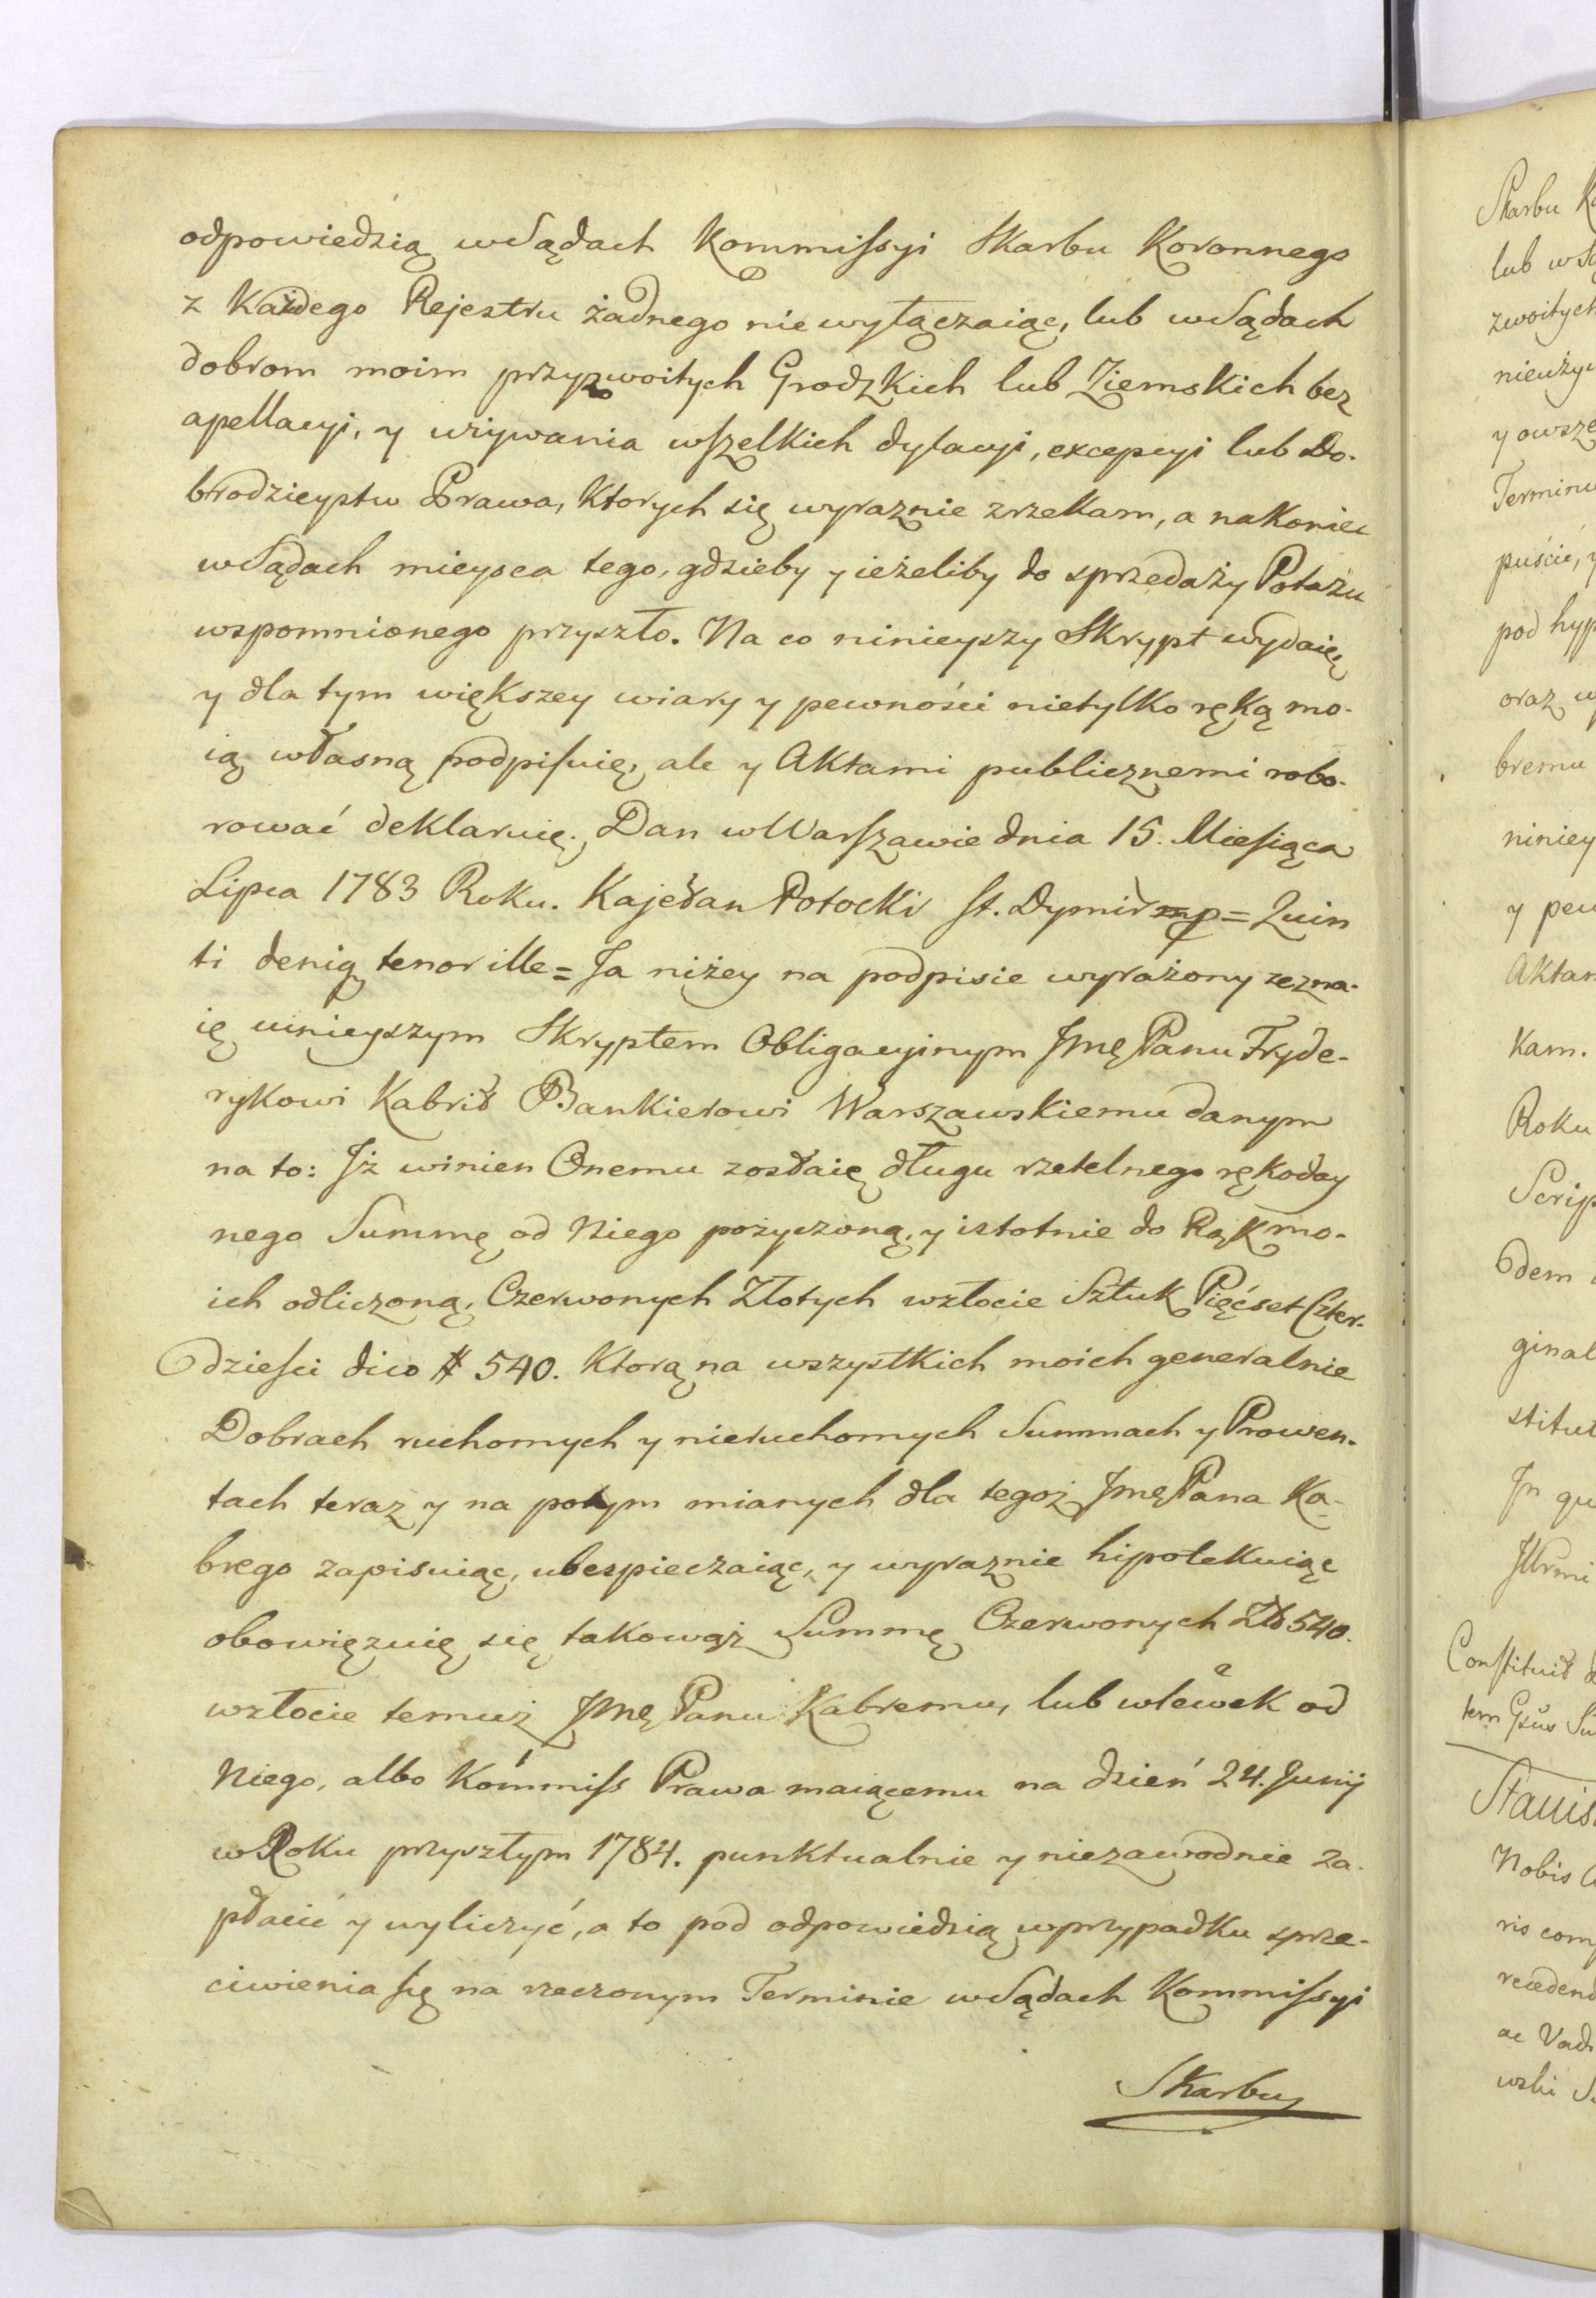 odpowiedzią w Sądach Kommissyi Skarbu Koronnego
z Każdego Rejestru żadnego nie wyłączaiąc, lub w Sądach
dobrom moim przyzwoitych Grodzkich lub Ziemskich bez
apellacyi, y używania wszelkich dylacyi, excepcyi lub Do-
brodzieystw Prawa, Ktorych się wyraznie zrzekam, a nakoniec
w Sądach mieysca tego, gdzieby y ieżeliby do sprzedaży Potażu
wspomnionego przyszło. Na co ninieyszy Skrypt wydaię
y dla tym większey wiary y pewności nietylko ręką mo-
ią własną podpisuię, ale y Aktami publicznemi robo-
rować deklaruię. Dan w Warszawie dnia 15. Miesiąca
Lipca 1783 Roku. Kajetan Potocki St. Dymir mp = Quin
ti deniq tenor ille = Ja niżey na podpisie wyrażony zezna-
ię ninieyszym Skryptem Obligacyinym Jmę Panu Fryde-
rykowi Kabrit Bankierowi Warszawskiemu danym
na to: Jż winien Onemu zostaię długu rzetelnego rękoday
nego Summę od Niego pożyczoną, y istotnie do Rąk mo-
ich odliczoną, Czerwonych Złotych wzłocie Sztuk Pięćset Czter-
dziesci dico # 540. Ktorą na wszystkich moich generalnie
Dobrach ruchomych y nieruchomych Summach y Prowen-
tach teraz y na potym mianych dla tegoż Jmę Pana Ka-
brego zapisuiąc, ubespieczaiąc, y wyraznie hipotekuiąc
obowięzuię się takowąż Summę Czerwonych Zł 540.
wzłocie temuż Jmę Panu Kabremu, lub wlewek od
Niego, albo Kommiss Prawa maiącemu na dzień 24. Junij
w Roku przyszłym 1784. punktualnie y niezawodnie za-
płacić y wyliczyć, a to pod odpowiedzią wprzypadku sprze-
ciwienia się na rzeczonym Terminie w Sądach Kommissyi
Skarbu
Skarbu
lub
zwoitych
Termin
puście,
pod
oraz
bremu
niniey
y pew
Aktam
kam.
Roku
Scrip
dem
ginal
stitut
Jn qu
Constituit
tem
Stanis
Nobis
ris com
recedend
ac Vad